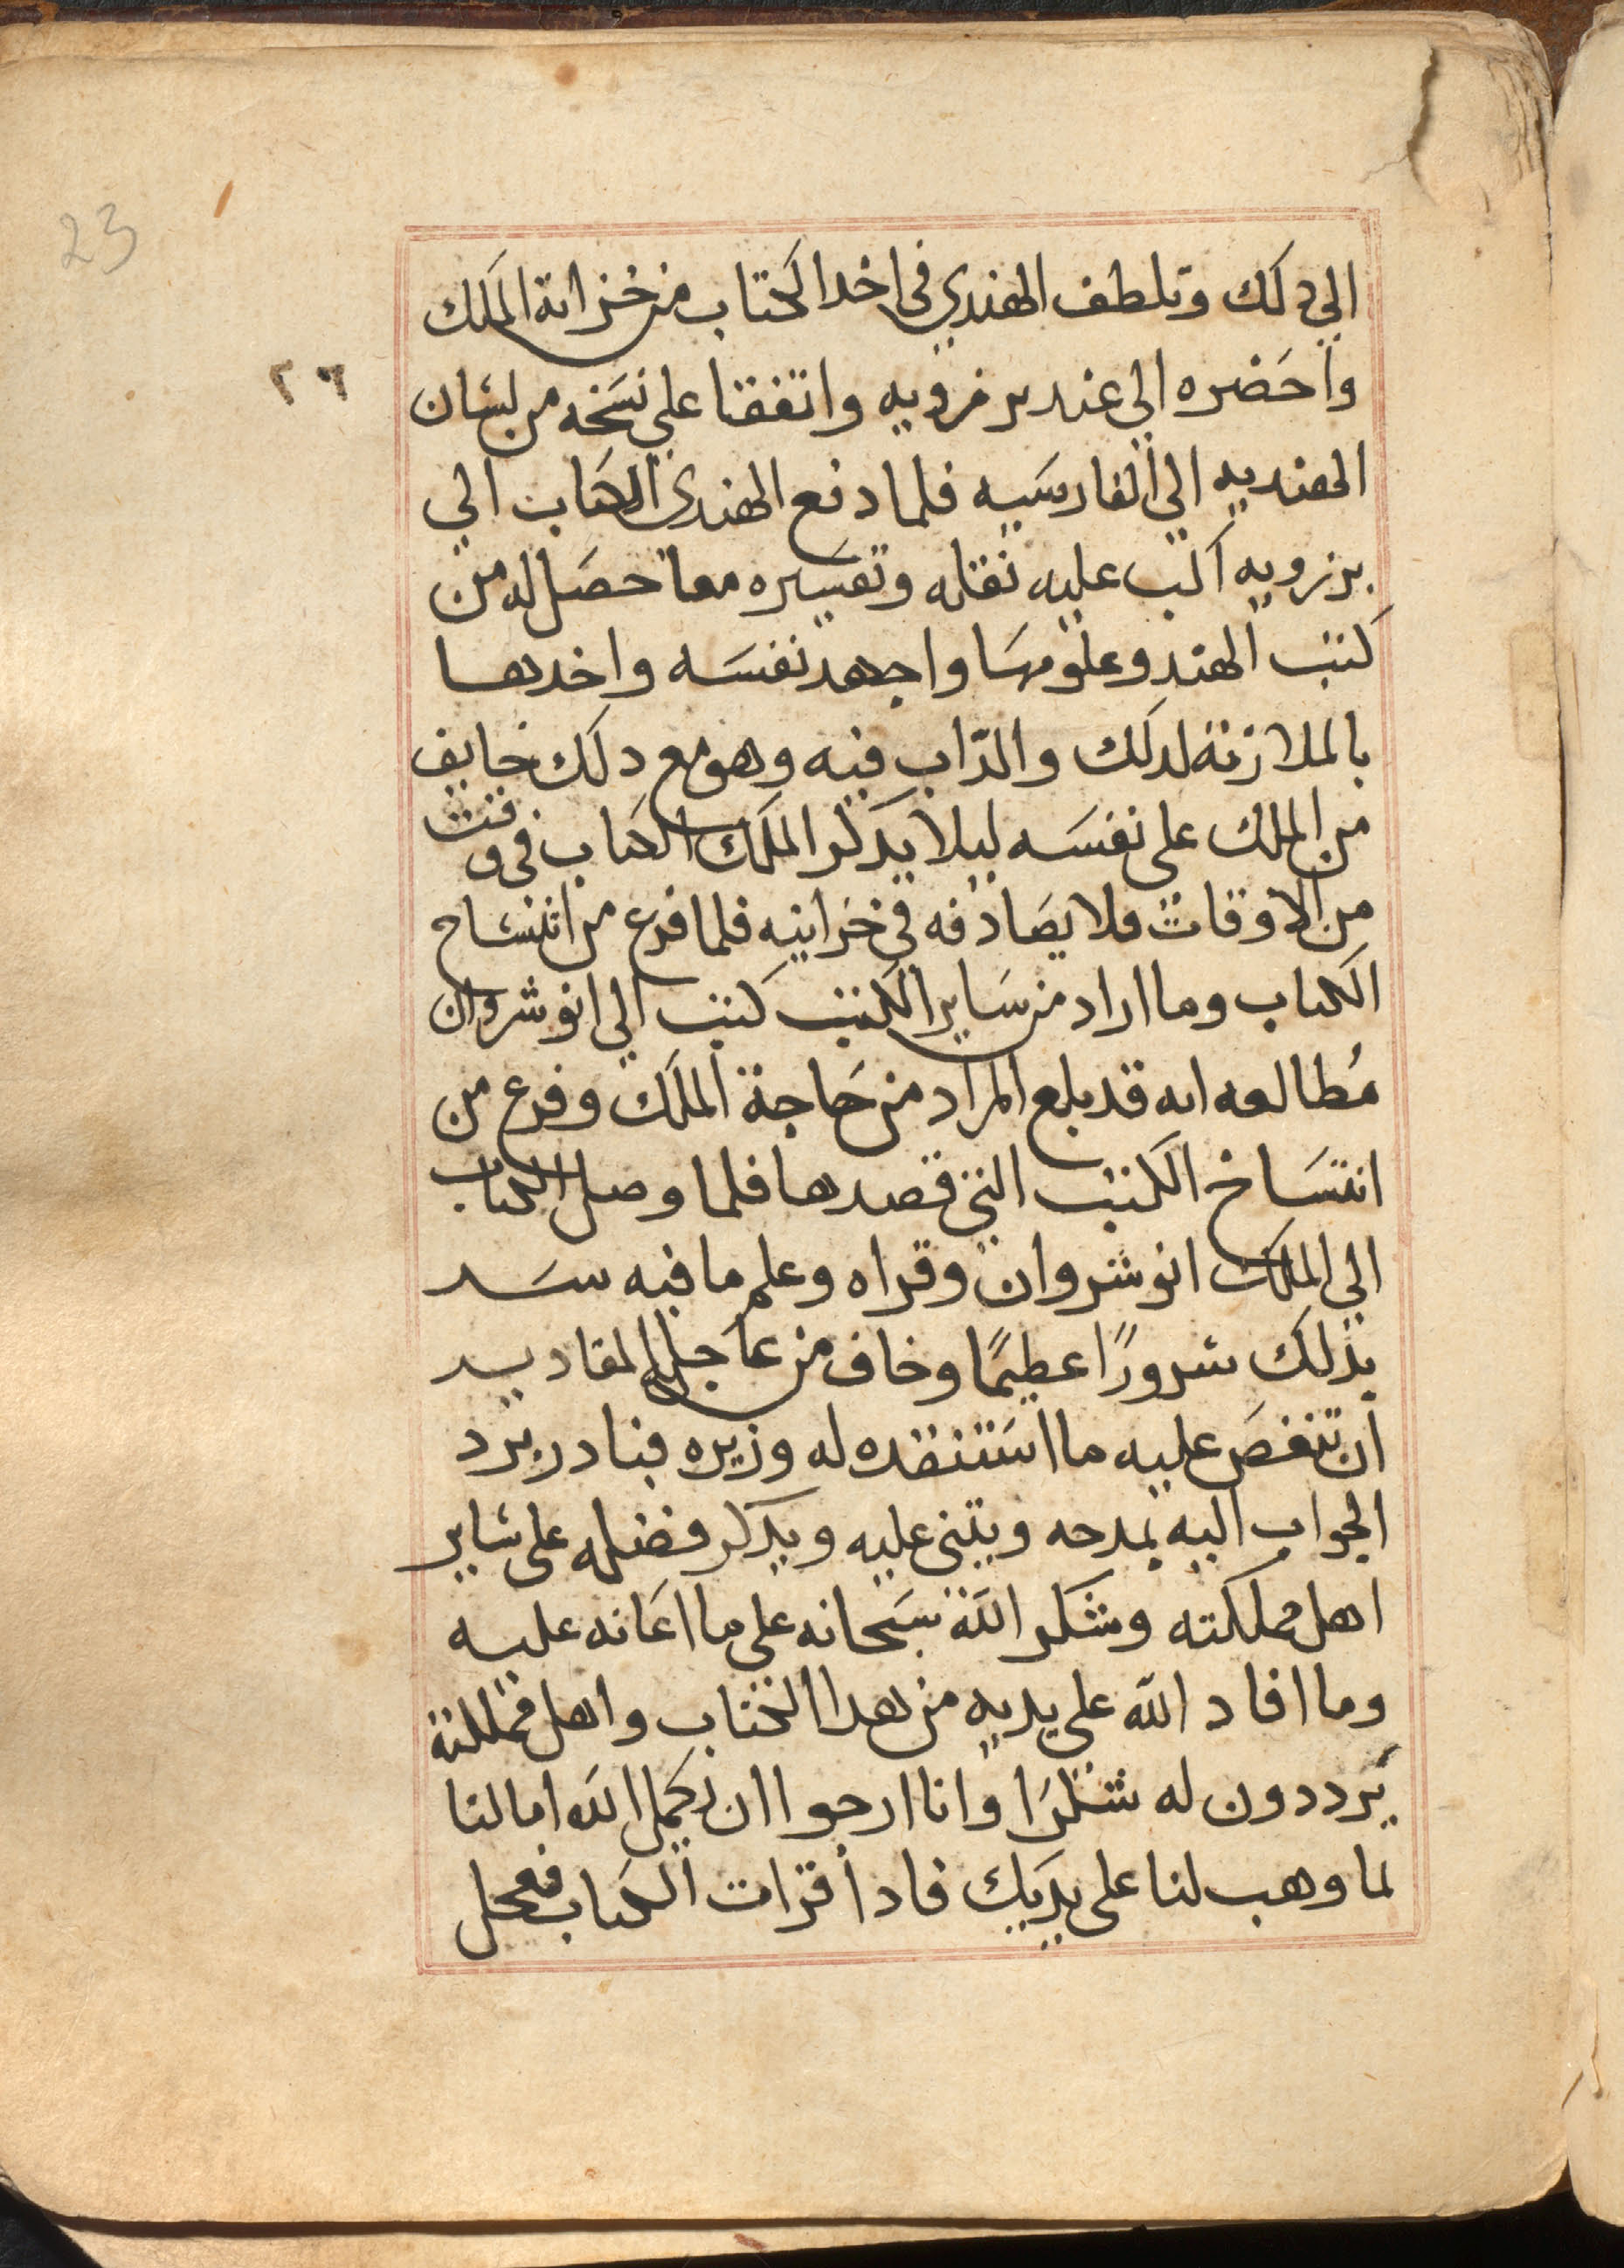 23
الي دلك وتلطف الهندي في اخد الكتاب من خزانة الملك
٢٦
واحضره الي عند برزويه واتفقنا علي نسخه من لسان
الهنديه الي الفارسيه فلما دفع الهندي الكتاب الي
برزويه اكب عليه نقله وتفسيره معما حصل له من
كتب الهند وعلومها واجهد نفسه واخدها
بالملازمة لدلك والداب فيه وهو مع دلك خايف
من الملك علي نفسه ليلا يدكر الملك الكتاب في وقت
من الاوقات فلا يصادفه في خزاينه فلما فرع من انتساخ
الكتاب وما اراد من ساير الكتب كتب الي انوشروان
مُطالعه انه قد بلع المراد من حاجة الملك وفرع من
انتساخ الكتب التي قصدها فلما وصل الكتاب
الي الملك انوشروان وقراه وعلم ما فيه سر
بذلك سرورًا عظيمًا وخاف من عاجل المقادير
ان تنغص عليه ما استنقده له وزيره فبادر برد
الجواب اليه يمدحه ويثني عليه ويدكر فضله علي ساير
اهل مملكته وشكر الله سبحانه علي ما اعانه عليه
وما افاد الله علي يديه من هدا الكتاب واهل مملكته
يرددون له شكرًا وانا ارجوا ان يكمل الله امالنا
لما وهب لنا علي يديك فادا قرات الكتاب فعجل